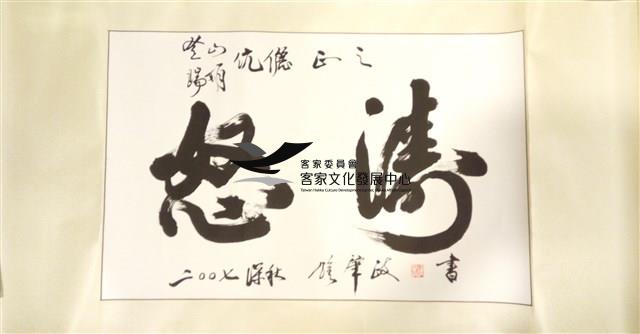 山
明
伉儷 正之
怒濤
客家委員會
客家文化發展中心
Taiwan Hakka Culture Development
二〇〇七 深秋 鍾肇政 書